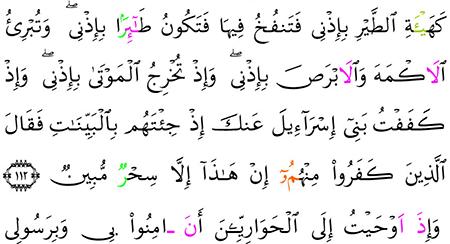 كَهَيْـَٔةِ اَ۬لطَّيْرِ بِإِذْنِى ۖ فَتَنفُخُ فِيهَا فَتَكُونُ طَـٰٓئِرَۢا بِإِذْنِى ۖ وَتُبْرِئُ
اَ۬لَاكْمَهَ وَالَابْرَصَ بِإِذْنِى ۖ وَإِذْ تُخْرِجُ اُ۬لْمَوْتَىٰ بِإِذْنِى ۖ وَإِذْ
كَفَفْتُ بَنِى إِسْرَآءِيلَ عَنكَ إِذْ جِئْتَهُم بِالْبَيِّنَـٰتِ فَقَالَ
اَ۬لَّذِينَ كَفَرُواْ مِنْهُمُۥٓ إِنْ هَـٰذَآ إِلَّا سِحْرٌ مُّبِينٌ ١١٢
وَإِذَ اَوْحَيْتُ إِلَى اَ۬لْحَوَارِيِّـۧنَ أَنَ ـ امِنُواْ بِى وَبِرَسُولِى